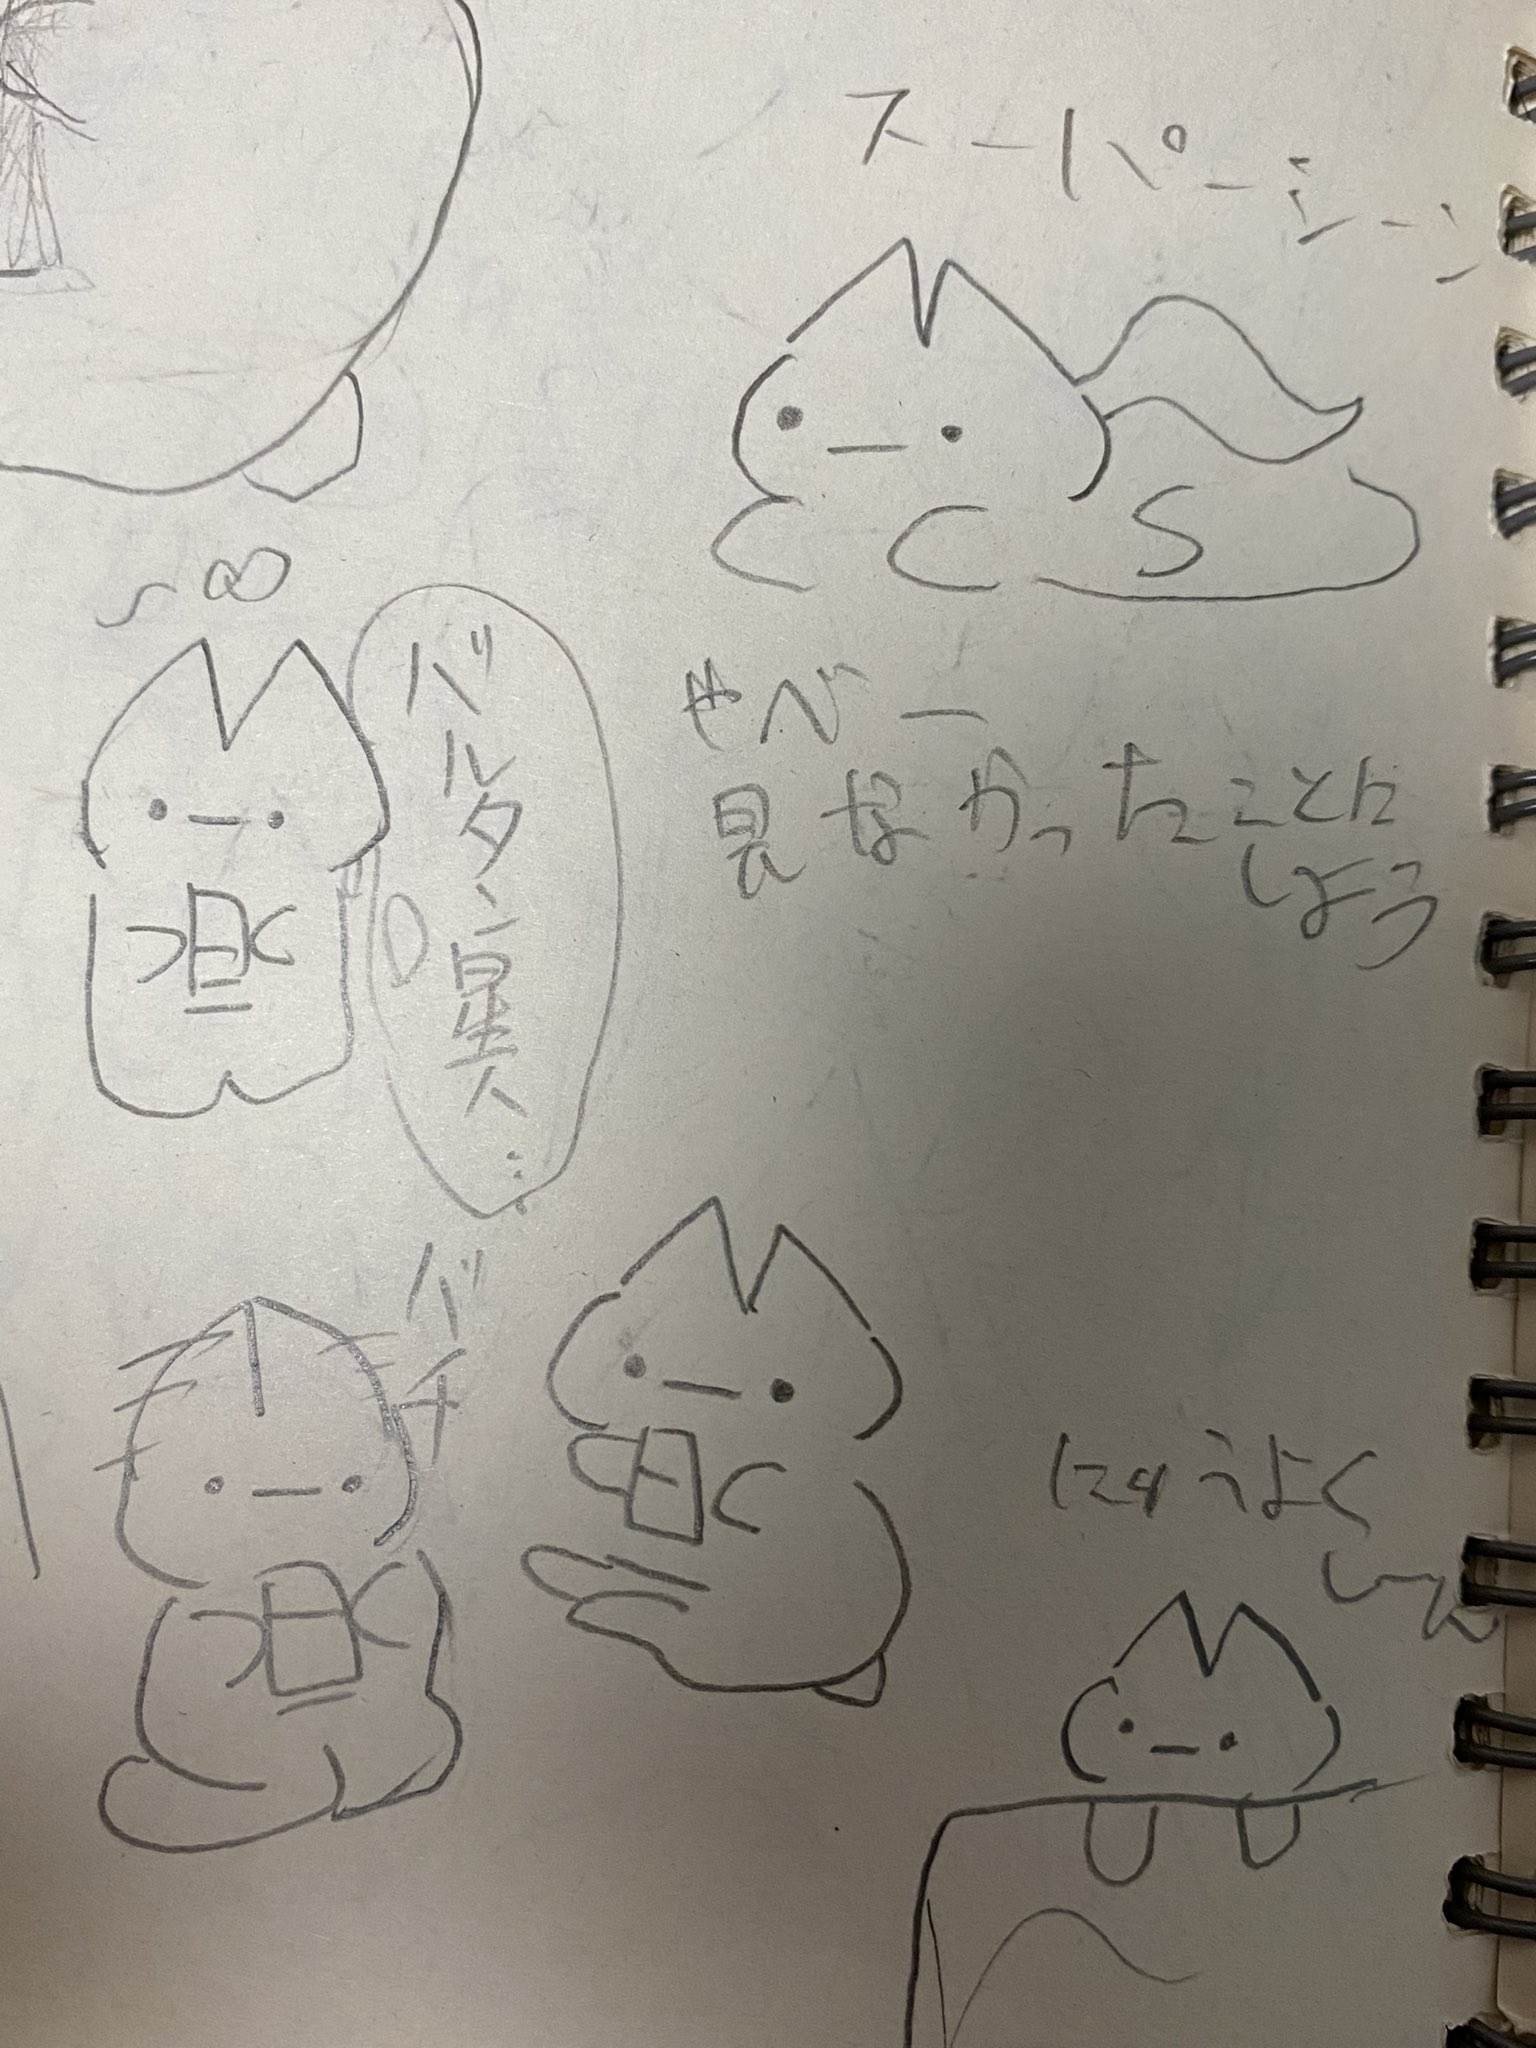 スーパーシーン
S
やべー
見なかったことに
しよう
バルタン星人…
バチ
にゅうよく
しーん